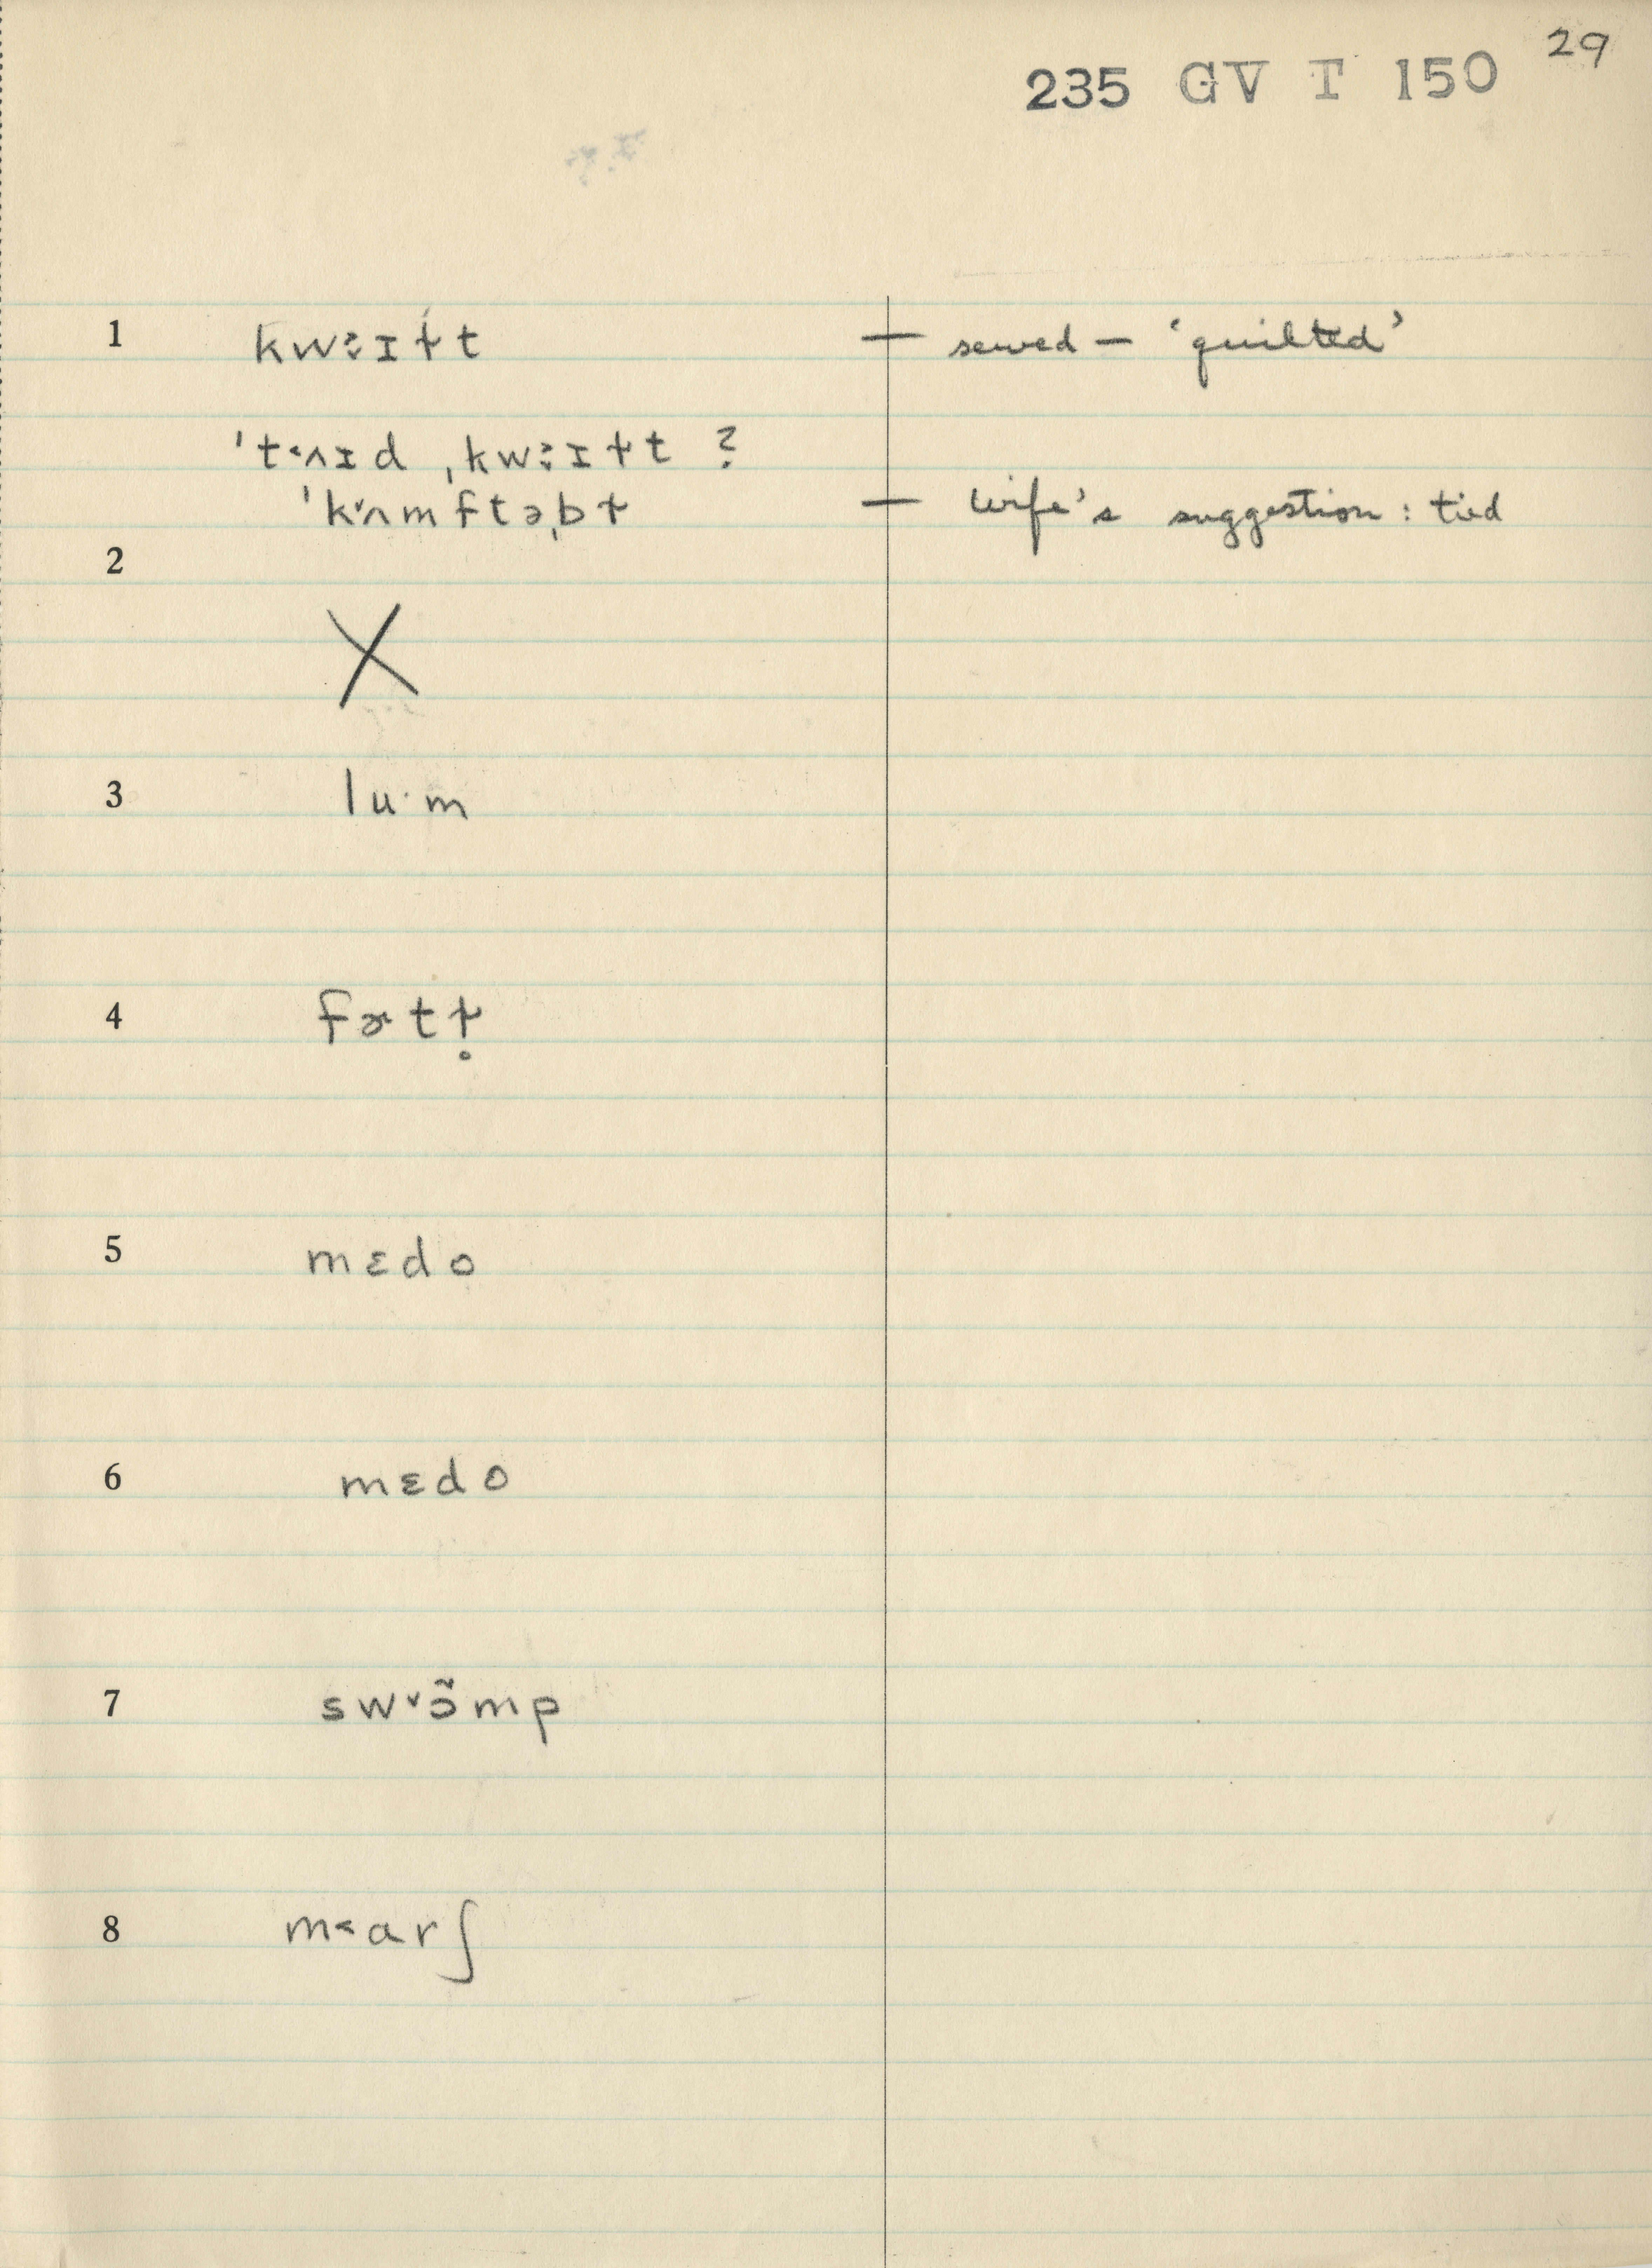 29
235 GV T 150
1 kw꞉ɪɫt — sewed — ‘quilted’
ˈt˂ʌɪd ˌkw꞉ɪɫt ?
ˈk˅ʌmftəˌbɫ — wife's suggestion : tied
2
X
3 lu·m
4 fɚtɫ̥
5 mɛdo
6 mɛdo
7 sw˅ɔ̃mp
8 m˂arʃ